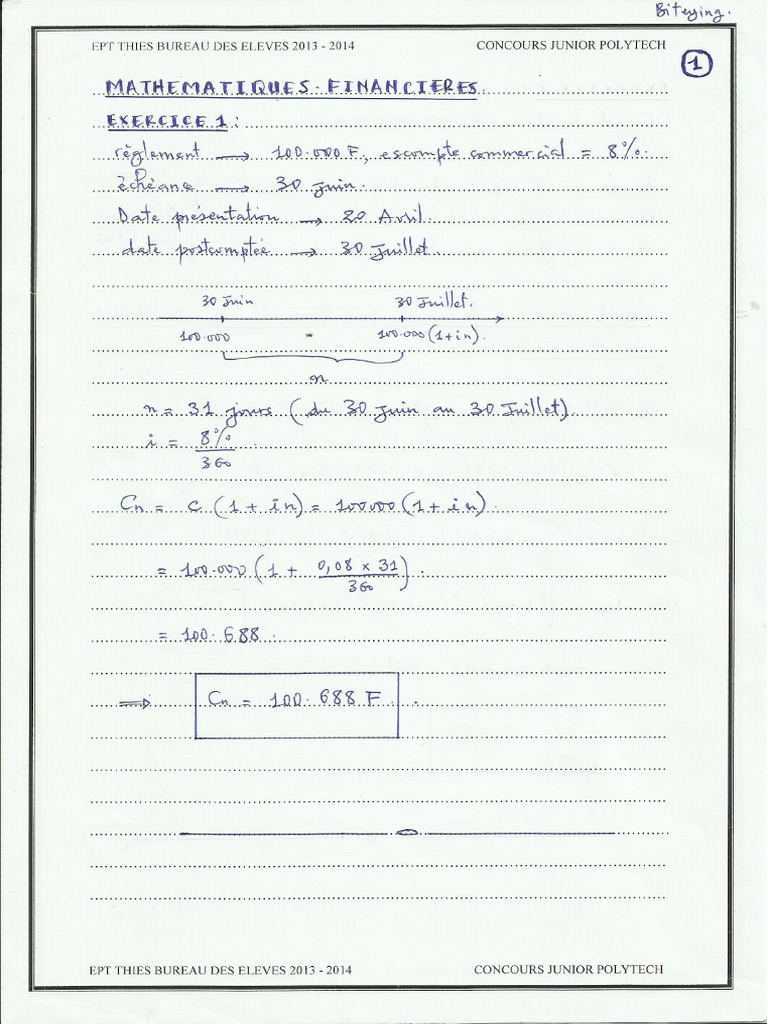 Biteying.
EPT THIES BUREAU DES ELEVES 2013 - 2014 CONCOURS JUNIOR POLYTECH
1
MATHEMATIQUES FINANCIERES
EXERCICE 1 :
règlement → 100.000 F, escompte commercial = 8%.
échéance → 30 Juin.
Date présentation → 20 Avril
date postcomptée → 30 Juillet
30 Juin 30 Juillet.
100.000 100.000 (1+in).
n
n = 31 jours (du 30 Juin au 30 Juillet)
i = 8% / 360
Cn = C (1 + in) = 100000 (1 + in)
= 100.000 (1 + 0,08 x 31 / 360).
= 100.688.
⇒ Cn = 100.688 F.
EPT THIES BUREAU DES ELEVES 2013 - 2014 CONCOURS JUNIOR POLYTECH